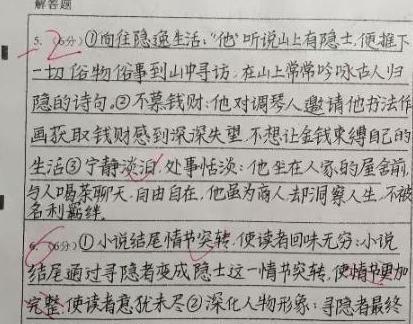 解答题
5.（6分）①向往隐逸生活："他"听说山上有隐士,便推下
一切俗物俗事到山中寻访,在山上常常吟咏古人归
隐的诗句。②不慕钱财：他对调琴人邀请他书法作
画获取钱财感到深深失望,不想让金钱束缚自己的
生活③宁静淡泊,处事恬淡：他坐在人家的屋舍前,
与人喝茶聊天,自由自在,他虽为商人却洞察人生,不被
名利羁绊。
6.（6分）①小说结尾情节突转,使读者回味无穷：小说
结尾通过寻隐者变成隐士这一情节突转,使情节更加
完整,使读者意犹未尽②深化人物形象：寻隐者最终